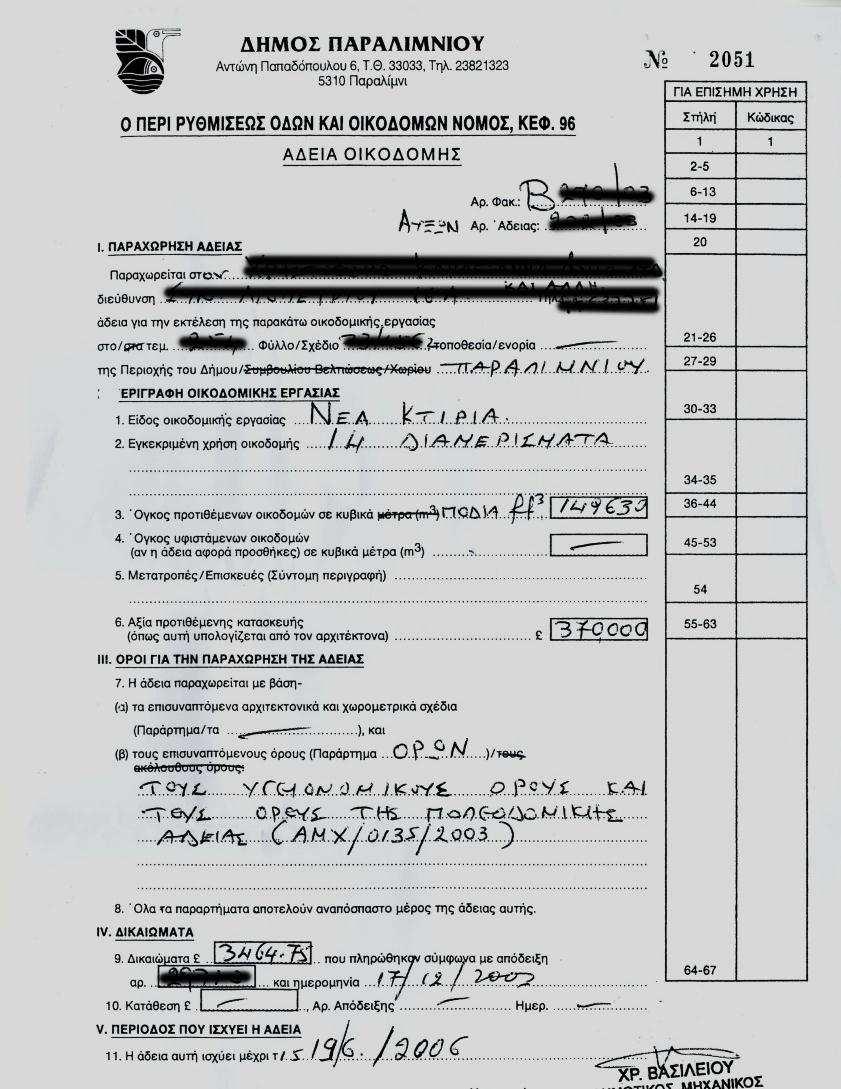 ΔΗΜΟΣ ΠΑΡΑΛΙΜΝΙΟΥ
Αντώνη Παπαδόπουλου 6, Τ.Θ. 33033, Τηλ. 23821323
5310 Παραλίμνι
№ 2051
Ο ΠΕΡΙ ΡΥΘΜΙΣΕΩΣ ΟΔΩΝ ΚΑΙ ΟΙΚΟΔΟΜΩΝ ΝΟΜΟΣ, ΚΕΦ. 96
ΑΔΕΙΑ ΟΙΚΟΔΟΜΗΣ
ΓΙΑ ΕΠΙΣΗΜΗ ΧΡΗΣΗ
Στήλή Κώδικας
1 1
2-5
6-13
14-19
20
21-26
27-29
30-33
34-35
36-44
45-53
54
55-63
64-67
Αρ. Φακ.: Β
Αρ. Άδειας:
Ι. ΠΑΡΑΧΩΡΗΣΗ ΑΔΕΙΑΣ
Παραχωρείται στον
διεύθυνση
άδεια για την εκτέλεση της παρακάτω οικοδομικής εργασίας
στο/στα τεμ. Φύλλο/Σχέδιο τοποθεσία/ενορία
της Περιοχής του Δήμου/Συμβουλίου Βελτιώσεως/Χωρίου ΠΑΡΑΛΙΜΝΙΟΥ
ΕΡΙΓΡΑΦΗ ΟΙΚΟΔΟΜΙΚΗΣ ΕΡΓΑΣΙΑΣ
1. Είδος οικοδομικής εργασίας ΝΕΑ ΚΤΙΡΙΑ
2. Εγκεκριμένη χρήση οικοδομής 14 ΔΙΑΜΕΡΙΣΜΑΤΑ
3. Όγκος προτιθέμενων οικοδομών σε κυβικά μέτρα (m³) ΠΟΔΙΑ ff³ 149630
4. Όγκος υφιστάμενων οικοδομών
(αν η άδεια αφορά προσθήκες) σε κυβικά μέτρα (m³)
5. Μετατροπές/Επισκευές (Σύντομη περιγραφή)
6. Αξία προτιθέμενης κατασκευής
(όπως αυτή υπολογίζεται από τον αρχιτέκτονα) £ 370,000
ΙΙΙ. ΟΡΟΙ ΓΙΑ ΤΗΝ ΠΑΡΑΧΩΡΗΣΗ ΤΗΣ ΑΔΕΙΑΣ
7. Η άδεια παραχωρείται με βάση-
(α) τα επισυναπτόμενα αρχιτεκτονικά και χωρομετρικά σχέδια
(Παράρτημα/τα ), και
(β) τους επισυναπτόμενους όρους (Παράρτημα ΟΡΩΝ )/τους
ακόλουθους όρους:
ΤΟΥΣ ΥΓΕΙΟΝΟΜΙΚΟΥΣ ΟΡΟΥΣ ΚΑΙ
ΤΟΥΣ ΟΡΟΥΣ ΤΗΣ ΠΟΛΕΟΔΟΜΙΚΗΣ
ΑΔΕΙΑΣ (ΑΜΧ/0135/2003)
8. Όλα τα παραρτήματα αποτελούν αναπόσπαστο μέρος της άδειας αυτής.
IV. ΔΙΚΑΙΩΜΑΤΑ
9. Δικαιώματα £ 3464.75 που πληρώθηκαν σύμφωνα με απόδειξη
αρ. και ημερομηνία 17/12/2003
10. Κατάθεση £ , Αρ. Απόδειξης Ημερ.
V. ΠΕΡΙΟΔΟΣ ΠΟΥ ΙΣΧΥΕΙ Η ΑΔΕΙΑ
11. Η άδεια αυτή ισχύει μέχρι τις 19/6/2006
ΧΡ. ΒΑΣΙΛΕΙΟΥ
ΜΗΧΑΝΙΚΟΣ